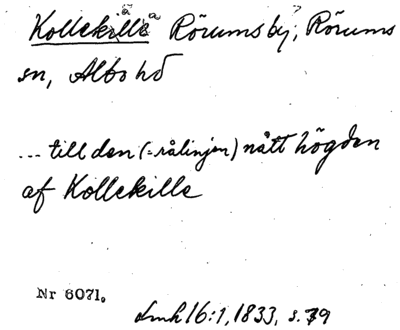 Kollekille Rörumsby, Rörums
sn, Albo hd
... till den (=rålinjen) nått högden
af Kollekille
Nr 6071.
Lmh 16:1, 1833, s. 79